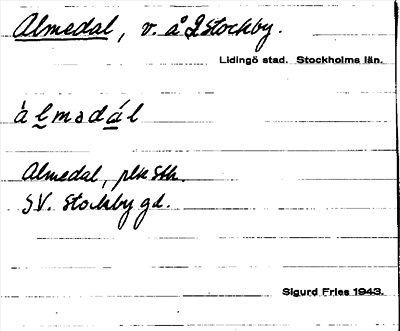 Almedal, v. å 2 Stockby.
Lidingö stad. Stockholms län.
àlmədál
Almedal, plk Sth.
SV. Stockby gd.
Sigurd Fries 1943.